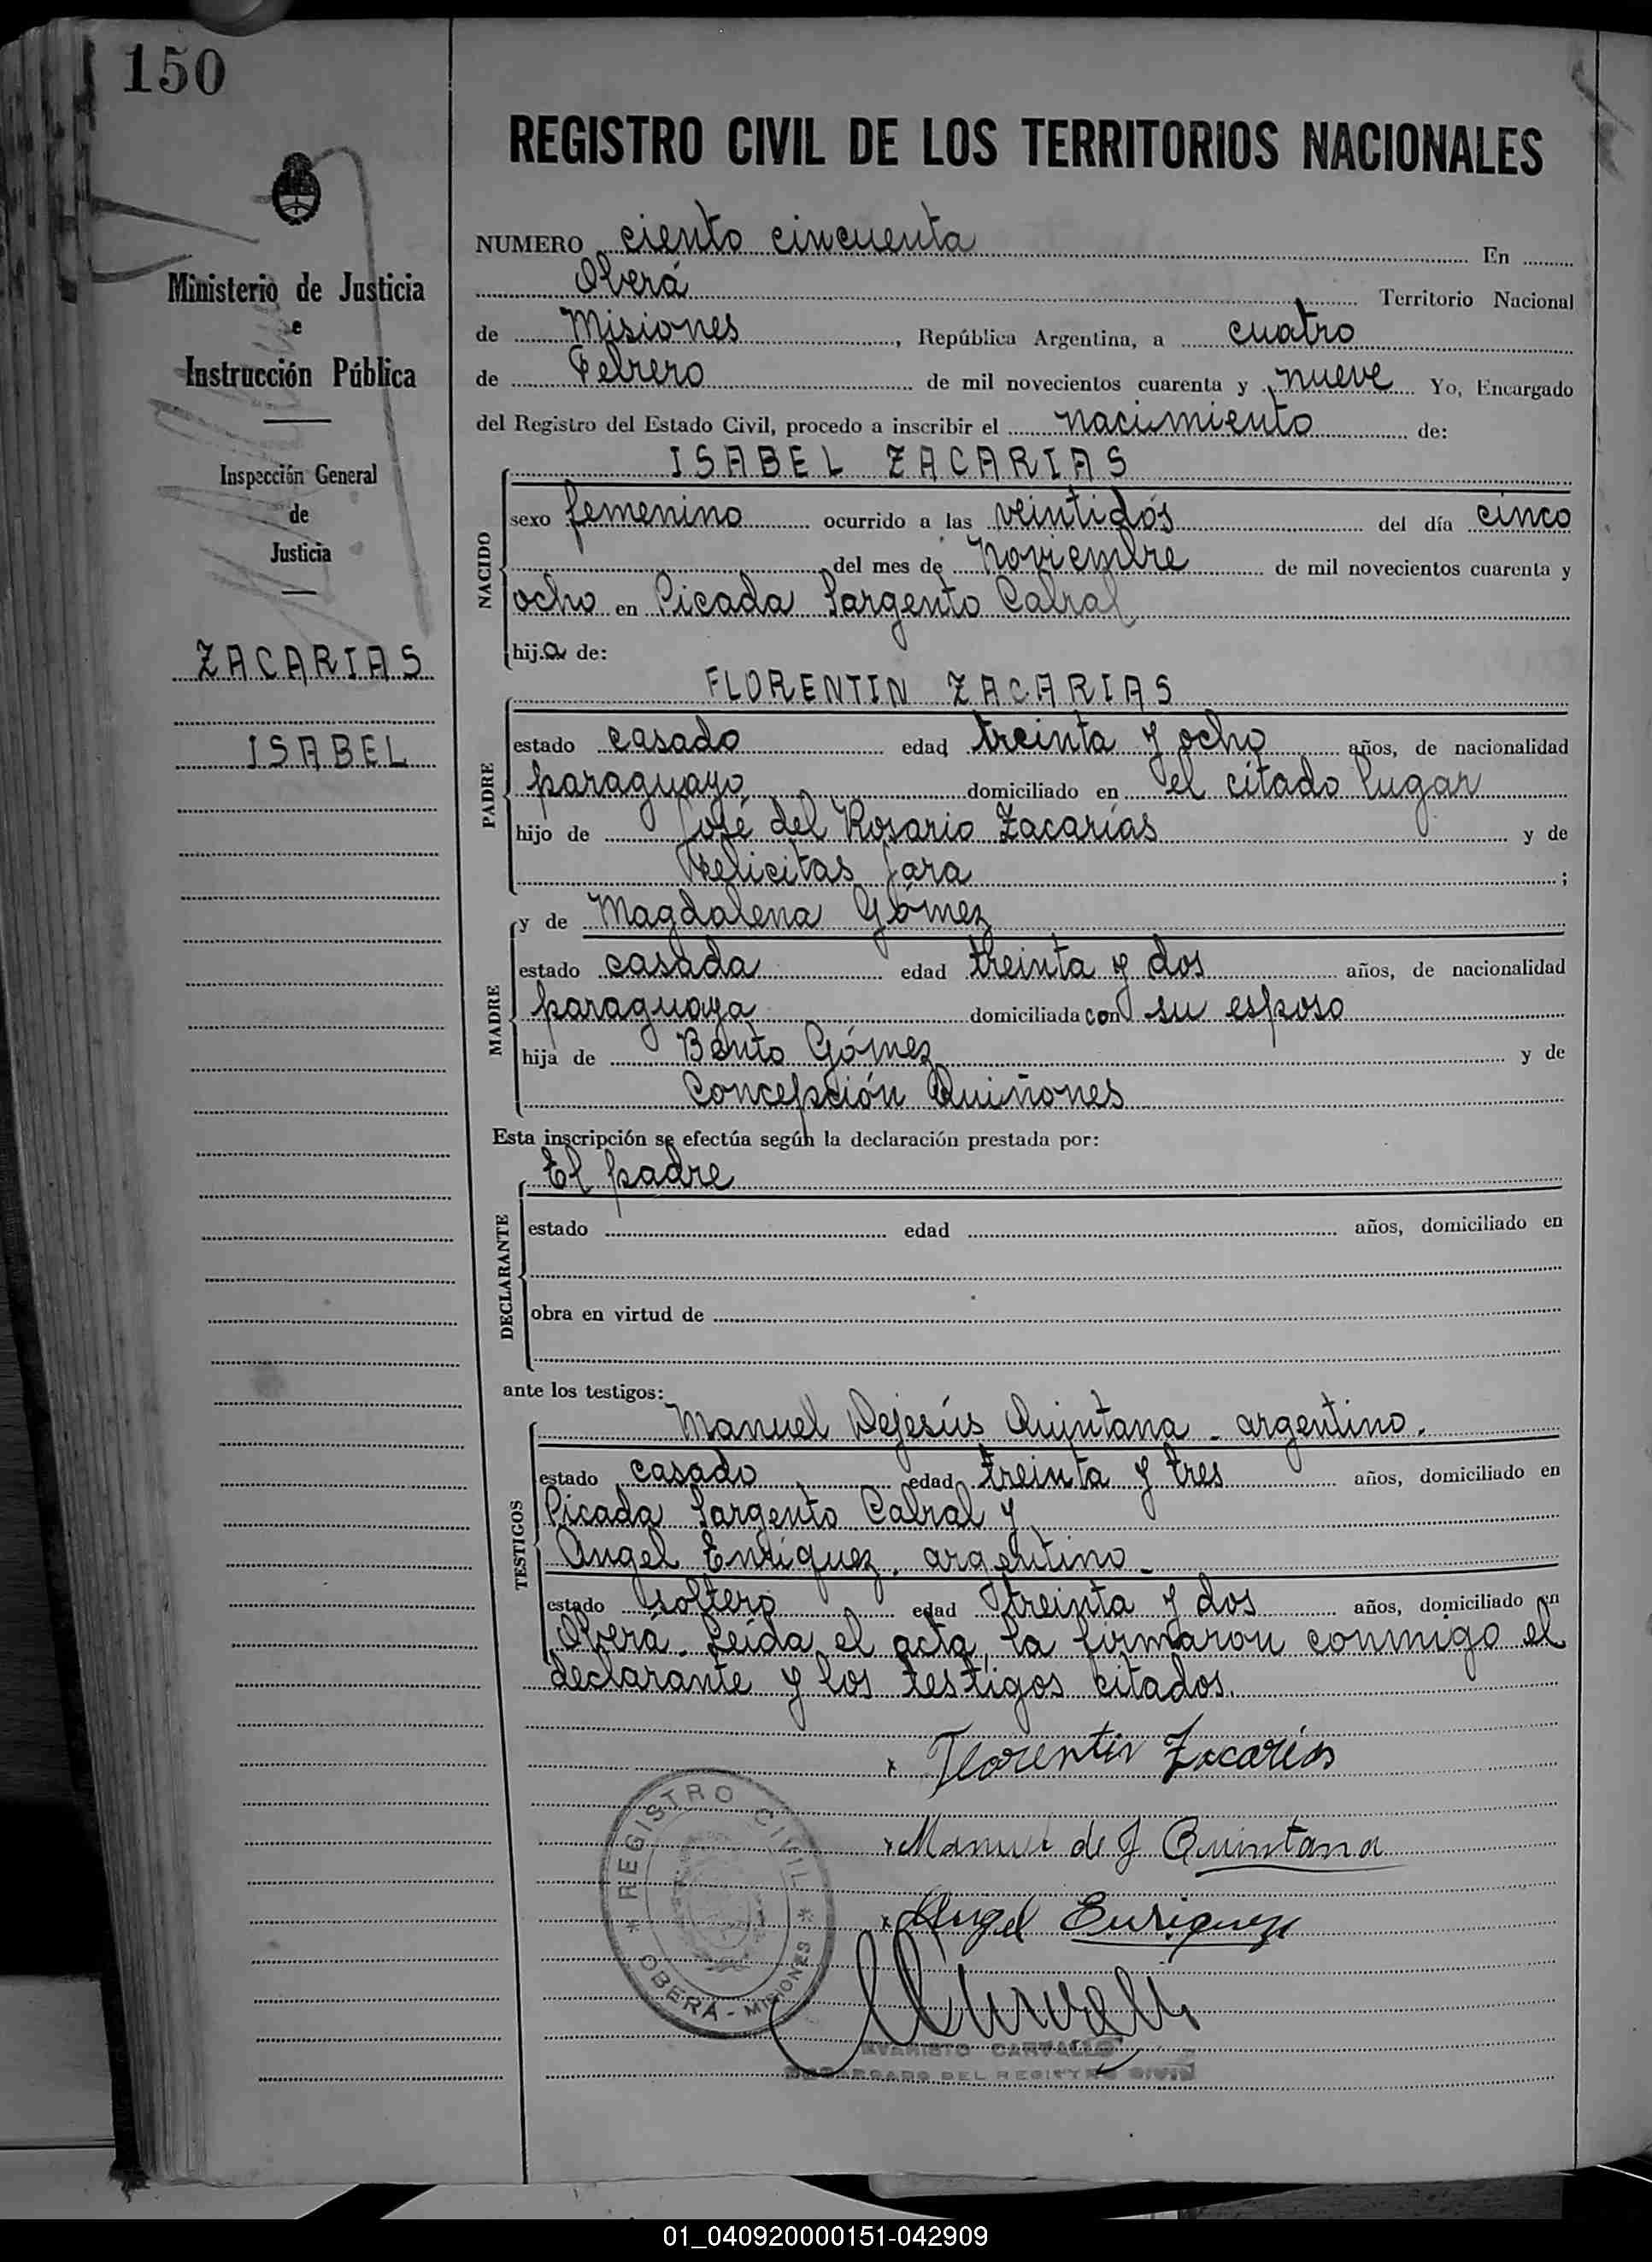 150
REGISTRO CIVIL DE LOS TERRITORIOS NACIONALES
Ministerio de Justicia
e
Instrucción Pública
Inspección General
de
Justicia
ZACARIAS
ISABEL
NUMERO ciento cincuenta En
Oberá Territorio Nacional
de Misiones, República Argentina, a cuatro
de Febrero de mil novecientos cuarenta y nueve Yo, Encargado
del Registro del Estado Civil, procedo a inscribir el nacimiento de:
NACIDO
ISABEL ZACARIAS
sexo femenino ocurrido a las veintidós del día cinco
del mes de Noviembre de mil novecientos cuarenta y
ocho en Picada Sargento Cabral
hija de:
PADRE
FLORENTIN ZACARIAS
estado casado edad treinta y ocho años, de nacionalidad
paraguayo domiciliado en el citado lugar
hijo de José del Rosario Zacarías y de
Felicitas Jara ;
MADRE
y de Magdalena Gómez
estado casada edad treinta y dos años, de nacionalidad
paraguaya domiciliada con su esposo
hija de Bento Gómez y de
Concepción Quiñones
Esta inscripción se efectúa según la declaración prestada por:
DECLARANTE
El padre
estado edad años, domiciliado en
obra en virtud de
ante los testigos:
TESTIGOS
Manuel Dejesús Quintana - argentino.
estado casado edad treinta y tres años, domiciliado en
Picada Sargento Cabral y
Angel Enríquez, argentino -
estado soltero edad treinta y dos años, domiciliado en
Oberá. Leída el acta, la firmaron conmigo el
declarante y los testigos citados.
x Florentin Zacarías
x Manuel de J Quintana
x Angel Enriquez
REGISTRO CIVIL
* OBERÁ - MISIONES *
EVARISTO CARVALLO
ENCARGADO DEL REGISTRO CIVIL
01_040920000151-042909